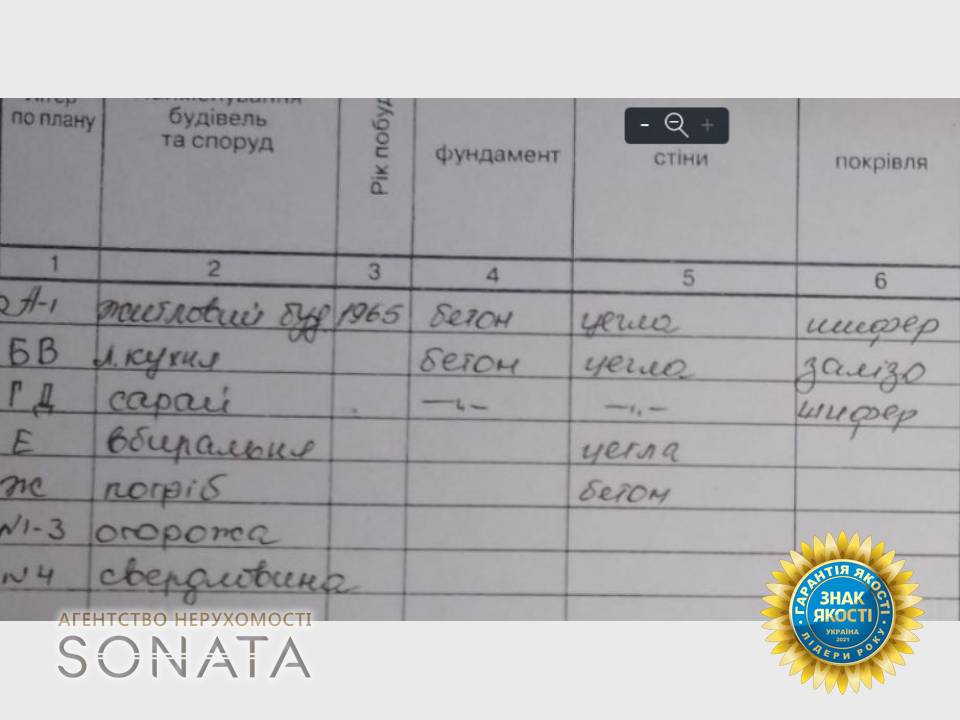 по плану
будівель
та споруд
Рік побуд
фундамент
стіни
покрівля
1 2 3 4 5 6
А-1 житловий буд 1965 бетон цегла шифер
БВ л.кухня бетон цегла залізо
Г Д сарай —"— —"— шифер
Е вбиральня цегла
Ж погріб бетон
N1-3 огорожа
N4 свердловина
АГЕНТСТВО НЕРУХОМОСТІ
SONATA
ГАРАНТІЯ ЯКОСТІ
ЗНАК
ЯКОСТІ
УКРАЇНА
2021
ЛІДЕРИ РОКУ